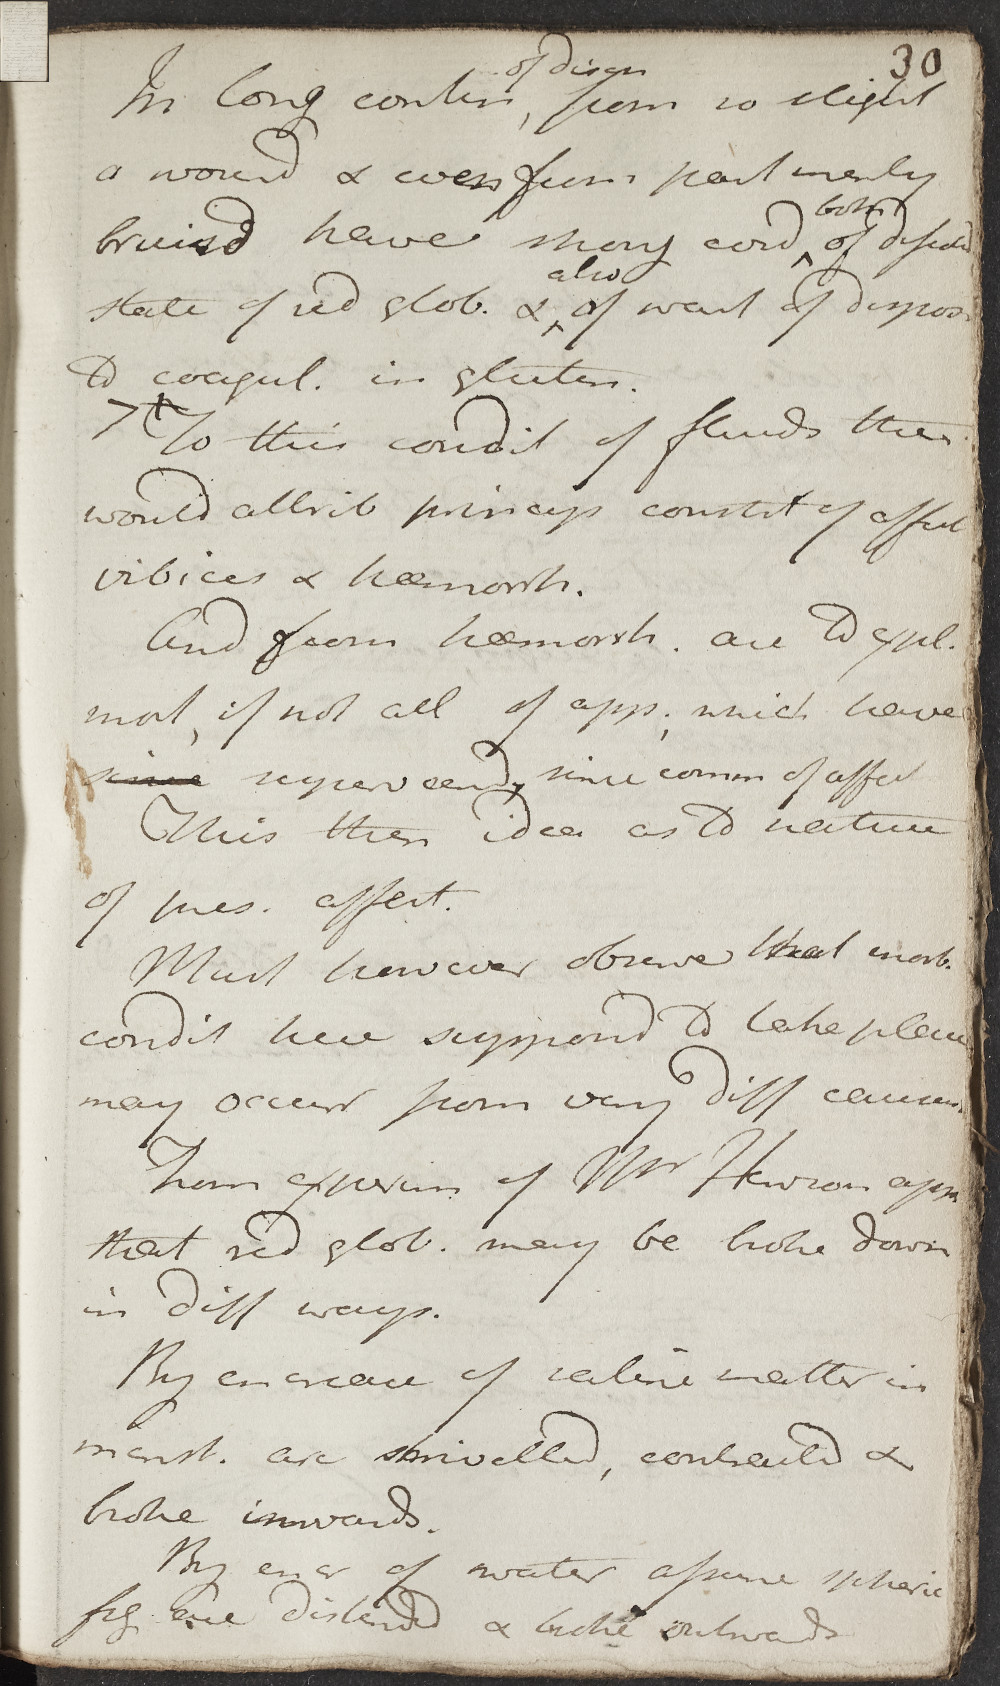 30
of disch
In long contin, from so slight
a wound & even from part merely
both
bruisd have strong evid of dissolv
also
state of red glob. & of want of dispos
to coagul. in gluten.
To this condit of fluids then
would attrib princip constit of affect
vibices & hæmorrh.
And from hæmorrh. are to expl.
most, if not all of app; which have
since supervened, since comm of affect
This then idea as to nature
of pres. affect.
Must however observe that morb.
condit here supposd to take place
may occur from very diff causes.
From experim of Mr Hewson appe
that red glob. may be broke down
in diff ways.
By encrease of saline matter in
menst. are shrivelled, contracted &
broke inwards.
By encr of water assume spheric
fig are distended & broke outwards